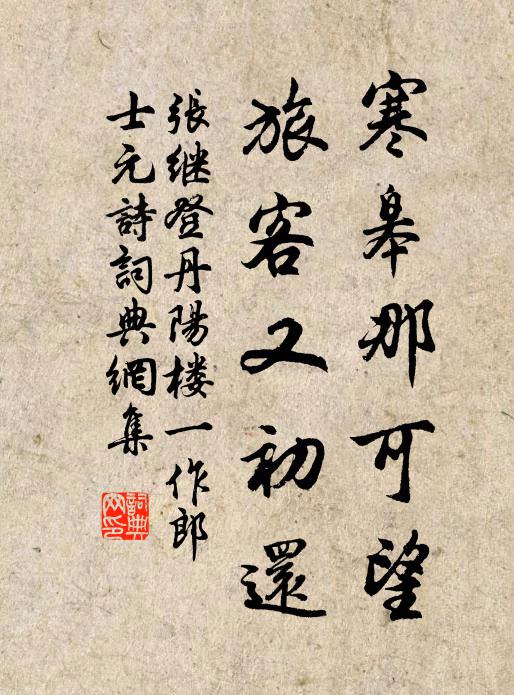 寒皋那可望
旅客又初還
張继登丹陽楼一作郎
士元詩詞典網集
詞典
网印